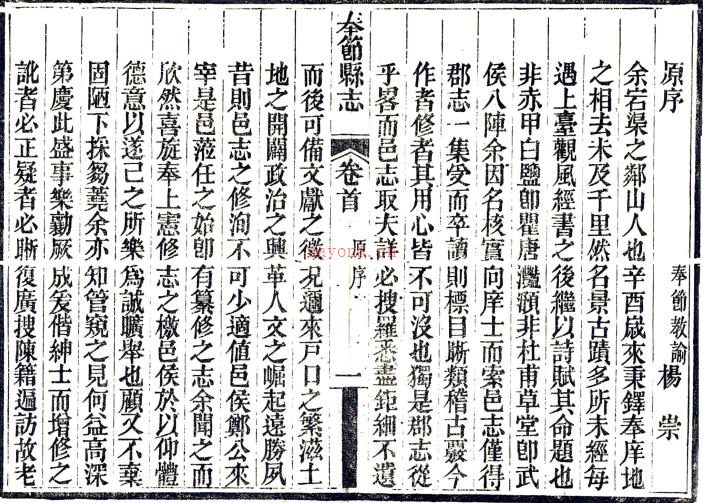 原序
奉節教諭楊崇
余宕渠之鄰山人也辛酉歲來秉鐸奉庠地
之相去未及千里然名景古蹟多所未經每
遇上臺觀風經書之後繼以詩賦其命題也
非赤甲白鹽卽瞿唐灩澦非杜甫草堂卽武
侯八陣余因名核實向庠士而索邑志僅得
郡志一集受而卒讀則標目晰類稽古嚴今
作者修者其用心皆不可沒也獨是郡志從
乎畧而邑志取夫詳必搜羅悉盡鉅細不遺
奉節縣志
卷首
原序
一
而後可備文獻之徵况邇來戸口之繁滋土
地之開闢政治之興革人文之崛起遠勝夙
昔則邑志之修洵不可少適値邑侯鄭公來
宰是邑蒞任之始卽有纂修之志余聞之而
欣然喜旋奉上憲修志之檄邑侯於以仰體
德意以遂己之所樂爲誠曠舉也顧又不棄
固陋下採芻蕘余亦知管窺之見何益高深
第慶此盛事樂勷厥成爰偕紳士而增修之
訛者必正疑者必晰復廣搜陳籍遍訪故老
nayona.cn